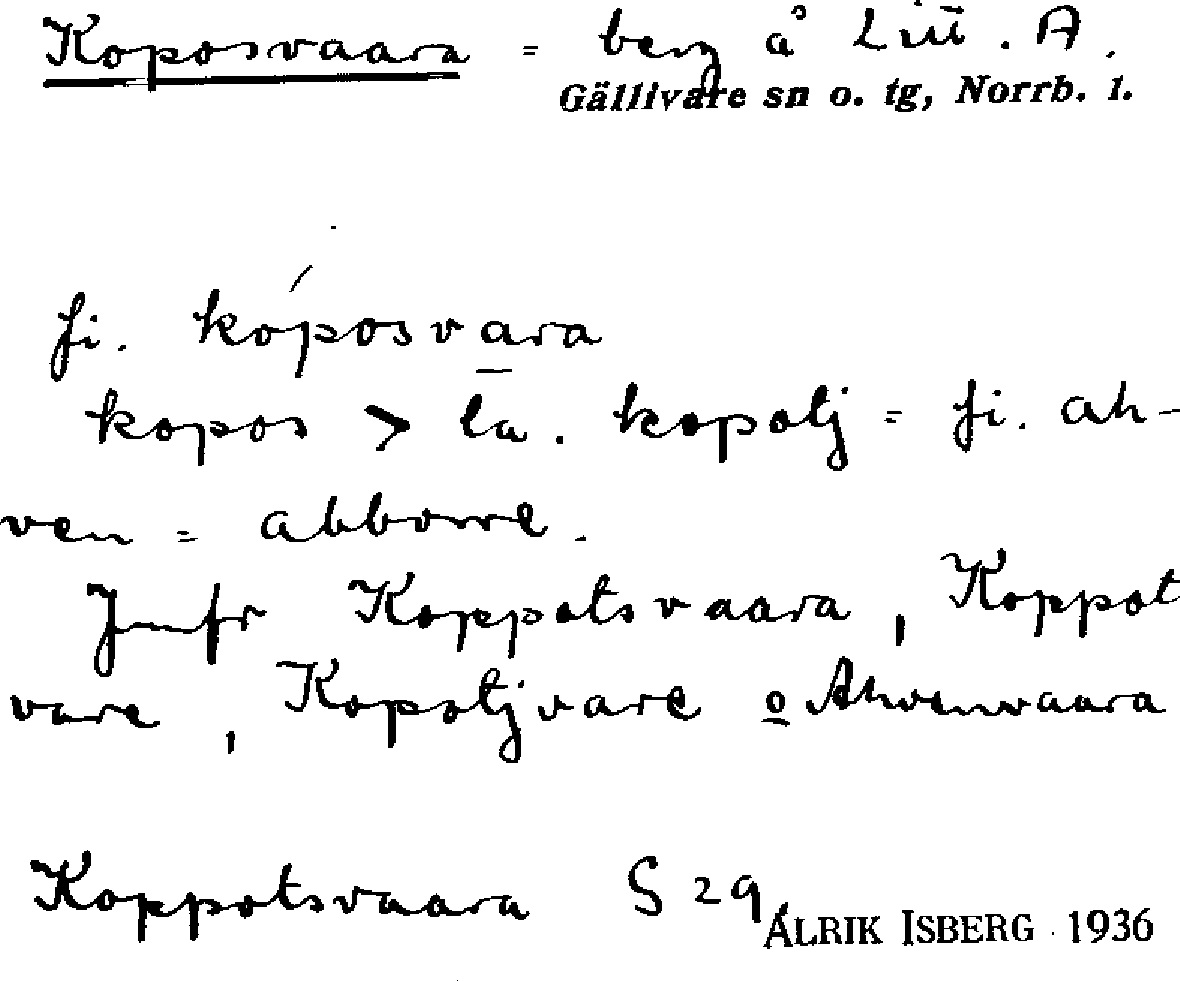 Koposvaara = berg å Litt. A.
Gällivare sn o. tg, Norrb. l.
fi. kóposva̱ra
kopos > la. kopotj = fi. ah-
ven = abborre.
Jmfr Koppotsvaara, Koppot
vare, Kopotjvare o Ahvenvaara
Koppotsvaara S 29,
ALRIK ISBERG 1936